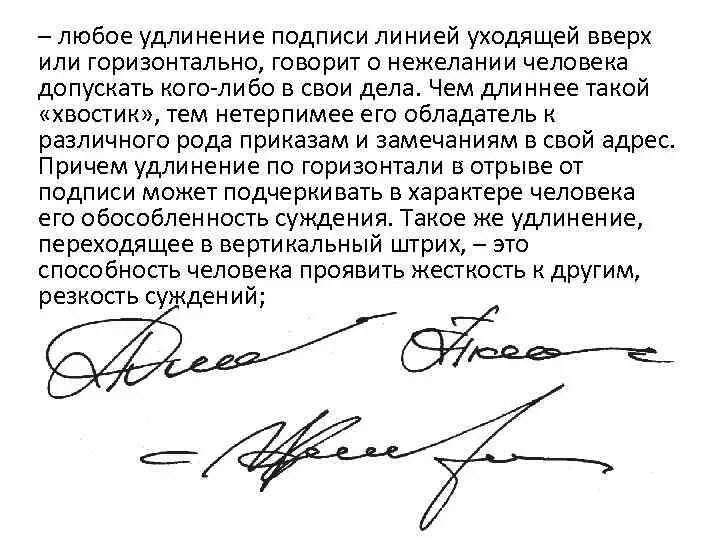 – любое удлинение подписи линией уходящей вверх
или горизонтально, говорит о нежелании человека
допускать кого-либо в свои дела. Чем длиннее такой
«хвостик», тем нетерпимее его обладатель к
различного рода приказам и замечаниям в свой адрес.
Причем удлинение по горизонтали в отрыве от
подписи может подчеркивать в характере человека
его обособленность суждения. Такое же удлинение,
переходящее в вертикальный штрих, – это
способность человека проявить жесткость к другим,
резкость суждений;